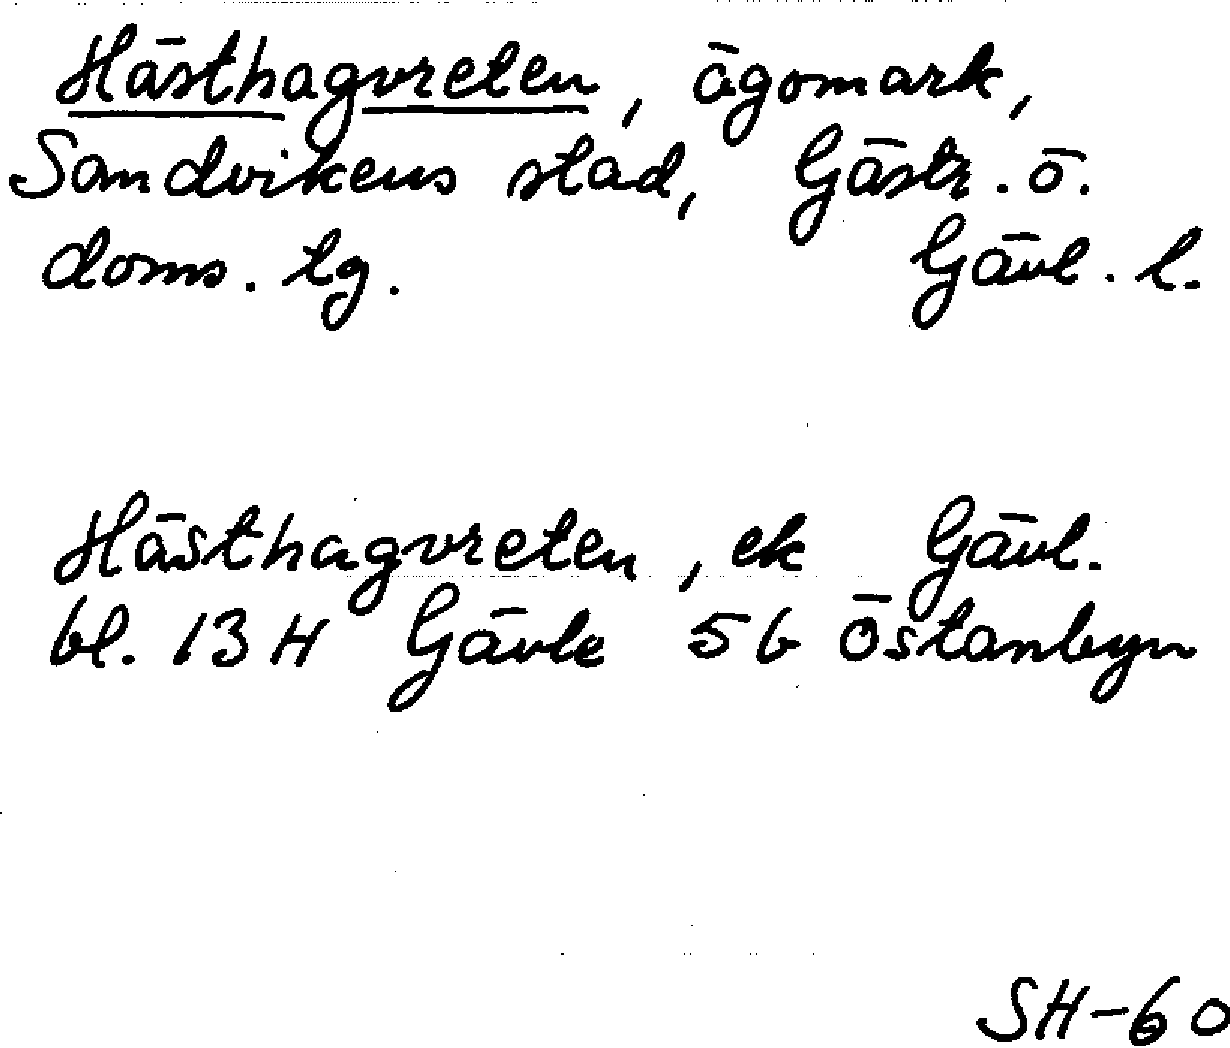 Hästhagvreten, ägomark,
Sandvikens stad, Gästr. ö.
doms. tg. Gävl. l.
Hästhagvreten, ek Gävl.
bl. 13 H Gävle 5 b Östanbyn
SH-60